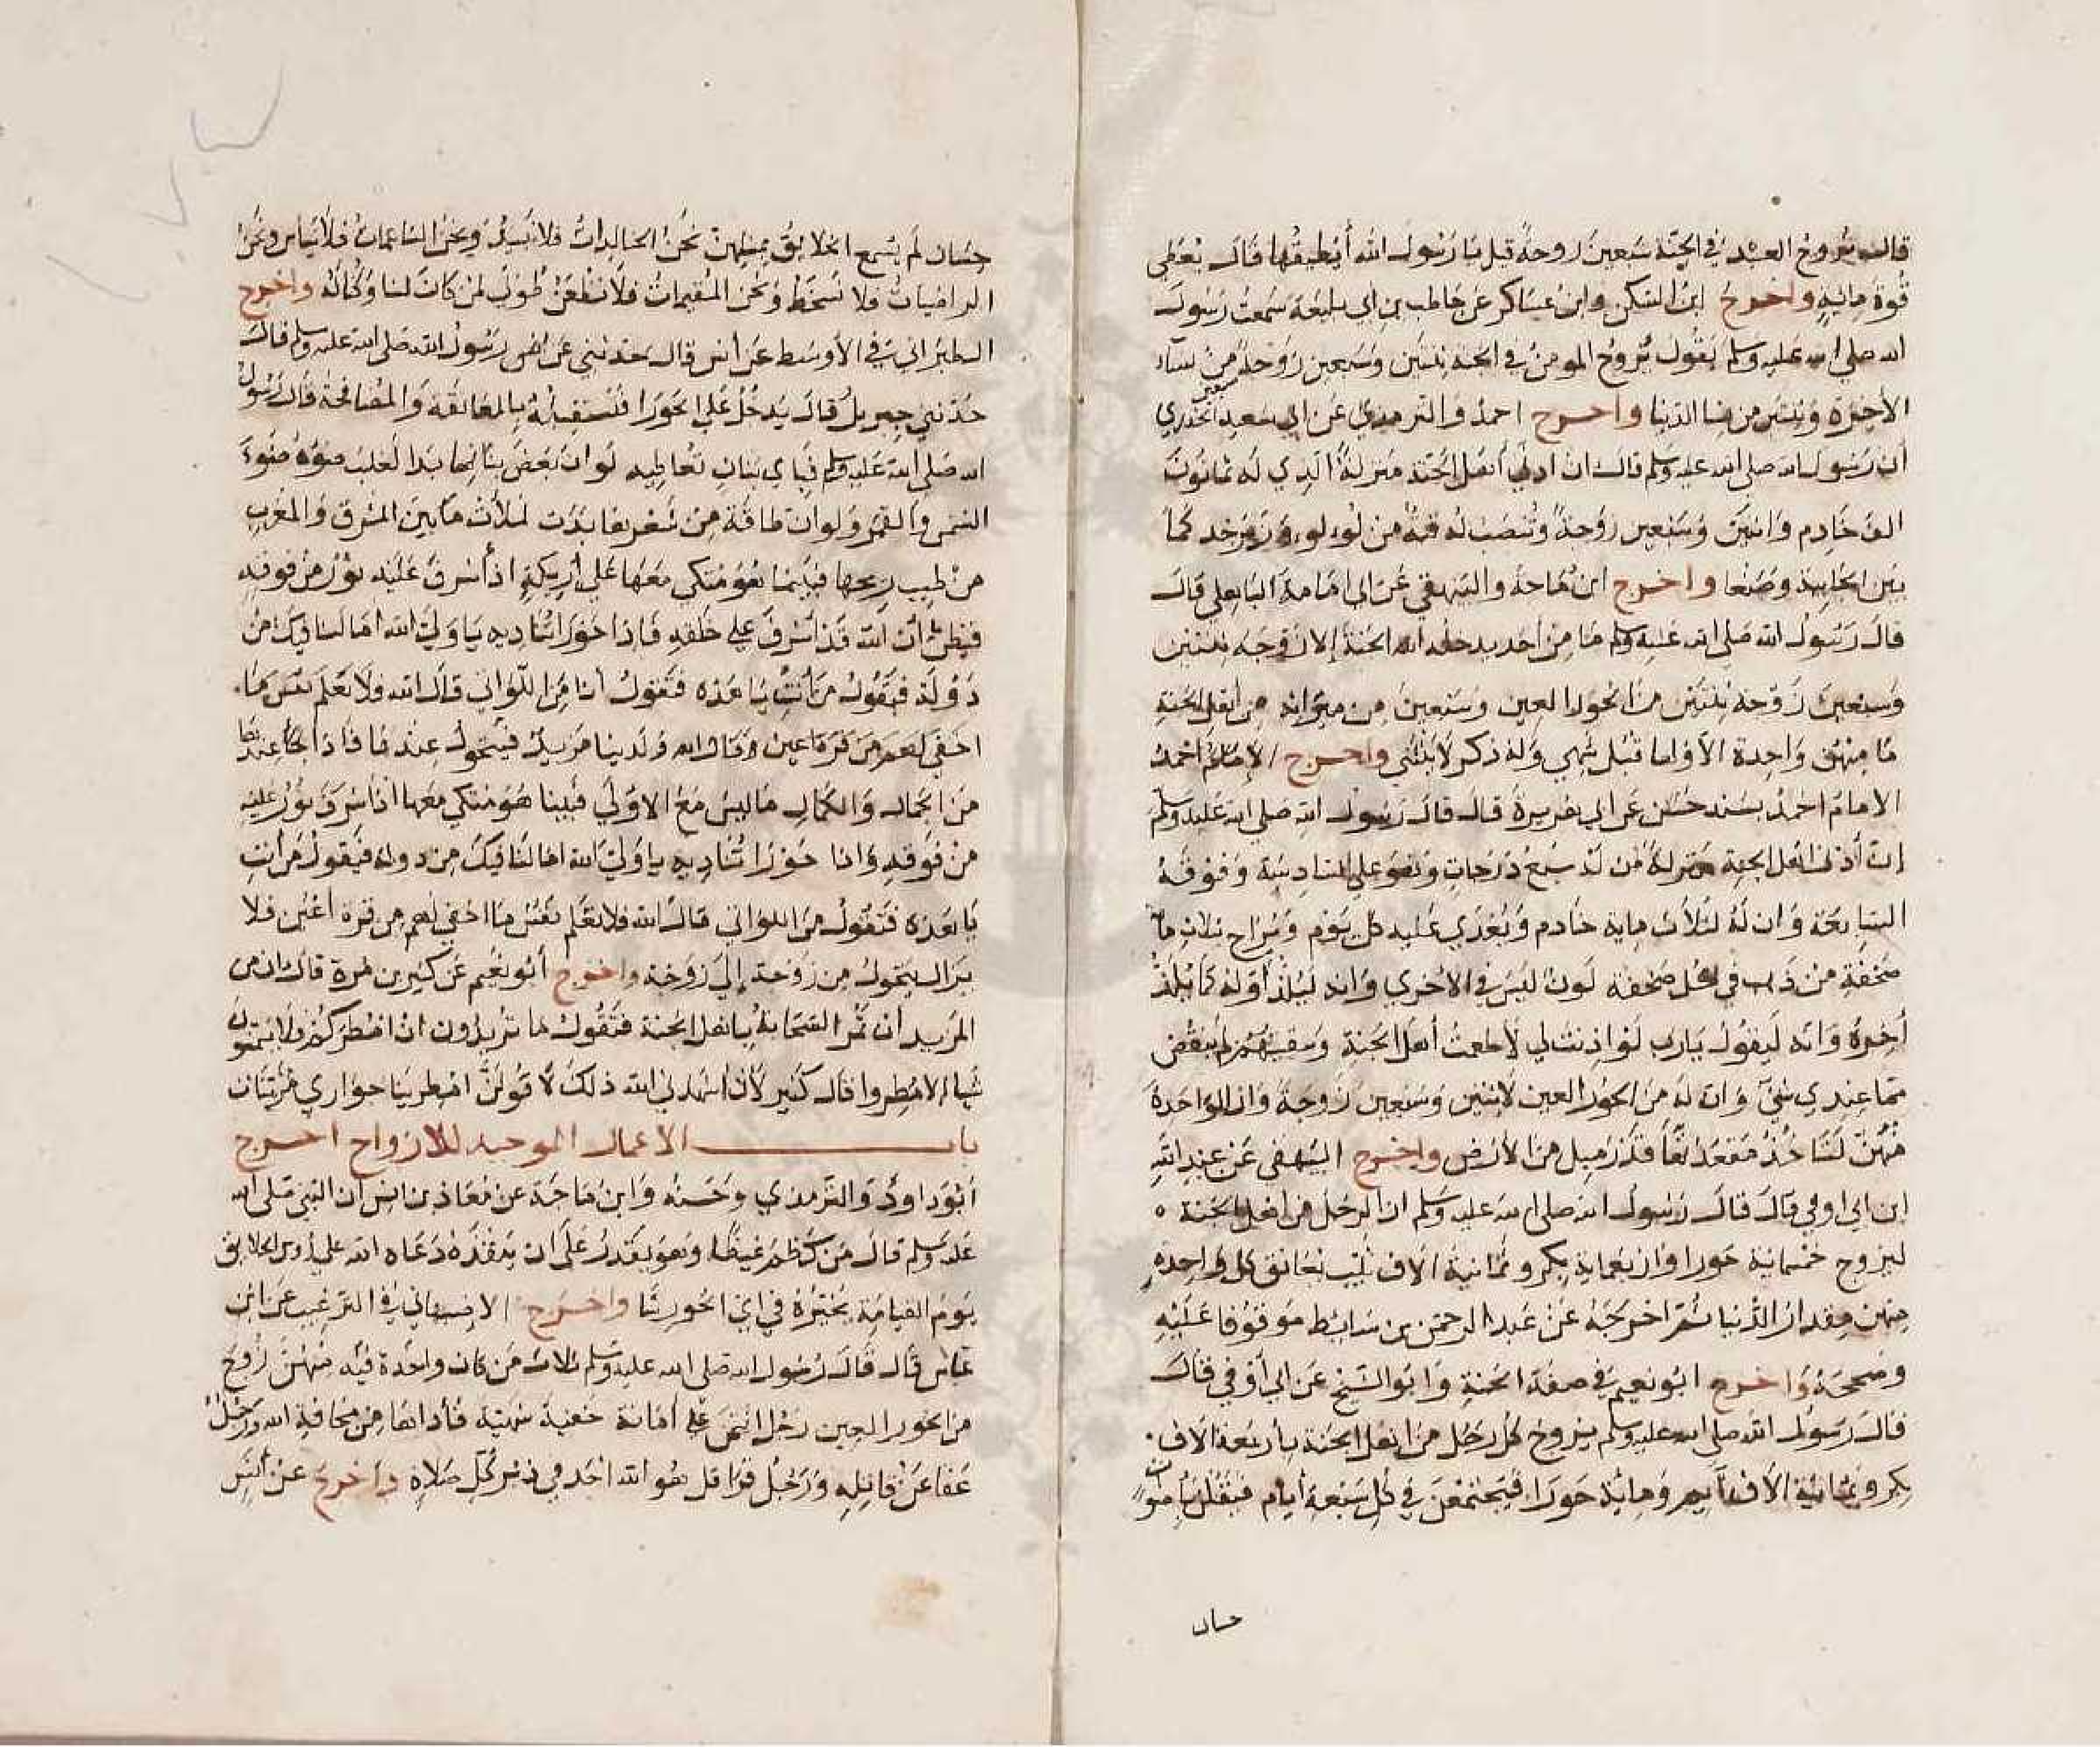 قال يزوج العبد في الجنة سبعين زوجة قيل يا رسول الله أيطيقها قال يعطى
قوة ماية واخرج ابن السكن وابن عساكر عن حاطب بن ابي بلتعة سمعت رسول
الله صلى الله عليه وسلم يقول يزوج المومن في الجنة ثنتين وسبعين زوجة سبعين من نساء
الآخرة وثنتين من نسا الدنيا واخرج احمد والترمذي عن ابي سعيد الخدري
ان رسول الله صلى الله عليه وسلم قال ان ادنى أهل الجنة منزلة الذي له ثمانون
الف خادم واثنين وسبعين زوجة وتنصب له قبة من لولو وزبرجد كما
بين الجابية وصنعا واخرج ابن ماجة والبيهقي عن ابي امامة الباهلي قال
قال رسول الله صلى الله عليه وسلم ما من احد يدخله الله الجنة إلا زوجه ثنتين
وسبعين زوجة ثنتين من الحور العين وسبعين من ميراثه من أهل الجنة
ما منهن واحدة الا ولها قبل شهي وله ذكر لا ينثني واخرج الامام احمد
الامام احمد بسند حسن عن ابي هريرة قال قال رسول الله صلى الله عليه وسلم
ان أدنى اهل الجنة منزلة من له سبع درجات وهو على السادسة وفوقه
السابعة وان له لثلاث ماية خادم ويغدي عليه كل يوم ويراح بثلاث ما
صحفة من ذهب في كل صحفة لون ليس في الاخرى وانه ليلذ أوله كما يلذ
أخره وانه ليقول يارب لو اذنت لي لأطعمت أهل الجنة وسقيتهم لم ينقص
مما عندي شي وان له من الحور العين لاثنين وسبعين زوجة وان الواحدة
منهن لتاخذ مقعدها قدر ميل من الأرض واخرج البيهقي عن عبد الله
ابن ابي اوفى قال قال رسول الله صلى الله عليه وسلم ان الرجل من اهل الجنة ه
ليزوج خمسماية حورا واربعماية بكر وثمانية الاف ثيب يعانق كل واحدة
منهن مقدار الدنيا ثم اخرجه عن عبد الرحمن بن سابط موقوفا عليه
وصححه واخرج ابو نعيم في صفة الجنة وابو الشيخ عن ابي أوفى قال
قال رسول الله صلى الله عليه وسلم يزوج كل رجل من اهل الجنة بأربعة الاف
بكر وثمانية الاف أيم وماية حورا فيجتمعن في كل سبعة أيام فيقلن بأصوات
حسان
حسان لم يسمع الخلايق بمثلهن نحن الخالدات فلا نبيد ونحن الناعمات فلا نباس ونحن
الراضيات فلا نسخط ونحن المقيمات فلا نظعن طوبى لمن كان لنا وكنا له واخرج
الطبراني في الأوسط عن أنس قال حدثني عن انس رسول الله صلى الله عليه وسلم قال
حدثني جبريل قال يدخل على الحورا فتستقبله بالمعانقة والمصافحة قال رسول
الله صلى الله عليه وسلم فباي بنان تعاطيه لو ان بعض بنانها بدا لغلب ضوه ضوء
الشمس والقمر ولو ان طاقة من شعرها بدت لملأت ما بين المشرق والمغرب
من طيب ريحها فبينما هو متكي معها على أريكة اذ أشرق عليه نور من فوقه
فيظن أن الله قد أشرف على خلقه فإذا حورا تناديه يا ولي الله اما لنا فيك من
دولة فيقول من أنت يا هذه فتقول أنا من اللواتي قال الله فلا تعلم نفس ما
اخفي لهم من قرة اعين وقال الله ولدينا مزيد فيتحول عندها فاذا عندها
من الجمال والكمال ما ليس مع الاولى فبينا هو متكي معها اذ اشرق نور عليه
من فوقه واذا حورا تناديه يا ولي الله اما لنا فيك من دولة فيقول من أنت
يا هذه فتقول من اللواتي قال الله فلا تعلم نفس ما اخفي لهم من قرة أعين فلا
يزال يتحول من زوجة إلى زوجة واخرج أبو نعيم عن كثير بن مرة قال ان من
المزيد أن تمر السحابة باهل الجنة فتقول ما تريدون ان امطركم فلا يتمنون
شيا الا مطروا قال كثير لأن اشهدني الله ذلك لأقولن امطرينا جواري مزينات
باب الاعمال الموجبة للازواج اخرج
أبو داود والترمذي وحسنه وابن ماجة عن معاذ بن انس ان النبي صلى الله
عليه وسلم قال من كظم غيظا وهو يقدر على ان ينفذه دعاه الله على روس الخلايق
يوم القيامة يخيره في اي الحور شا واخرج الاصبهاني في الترغيب عن ابن
عباس قال قال رسول الله صلى الله عليه وسلم ثلاث من كان واحدة فيه منهن زوج
من الحور العين رجل ائتمن على أمانة خفية شهية فأداها من مخافة الله ورجل
عفا عن قاتله ورجل قرا قل هو الله احد في دبر كل صلاة واخرج عن أنس